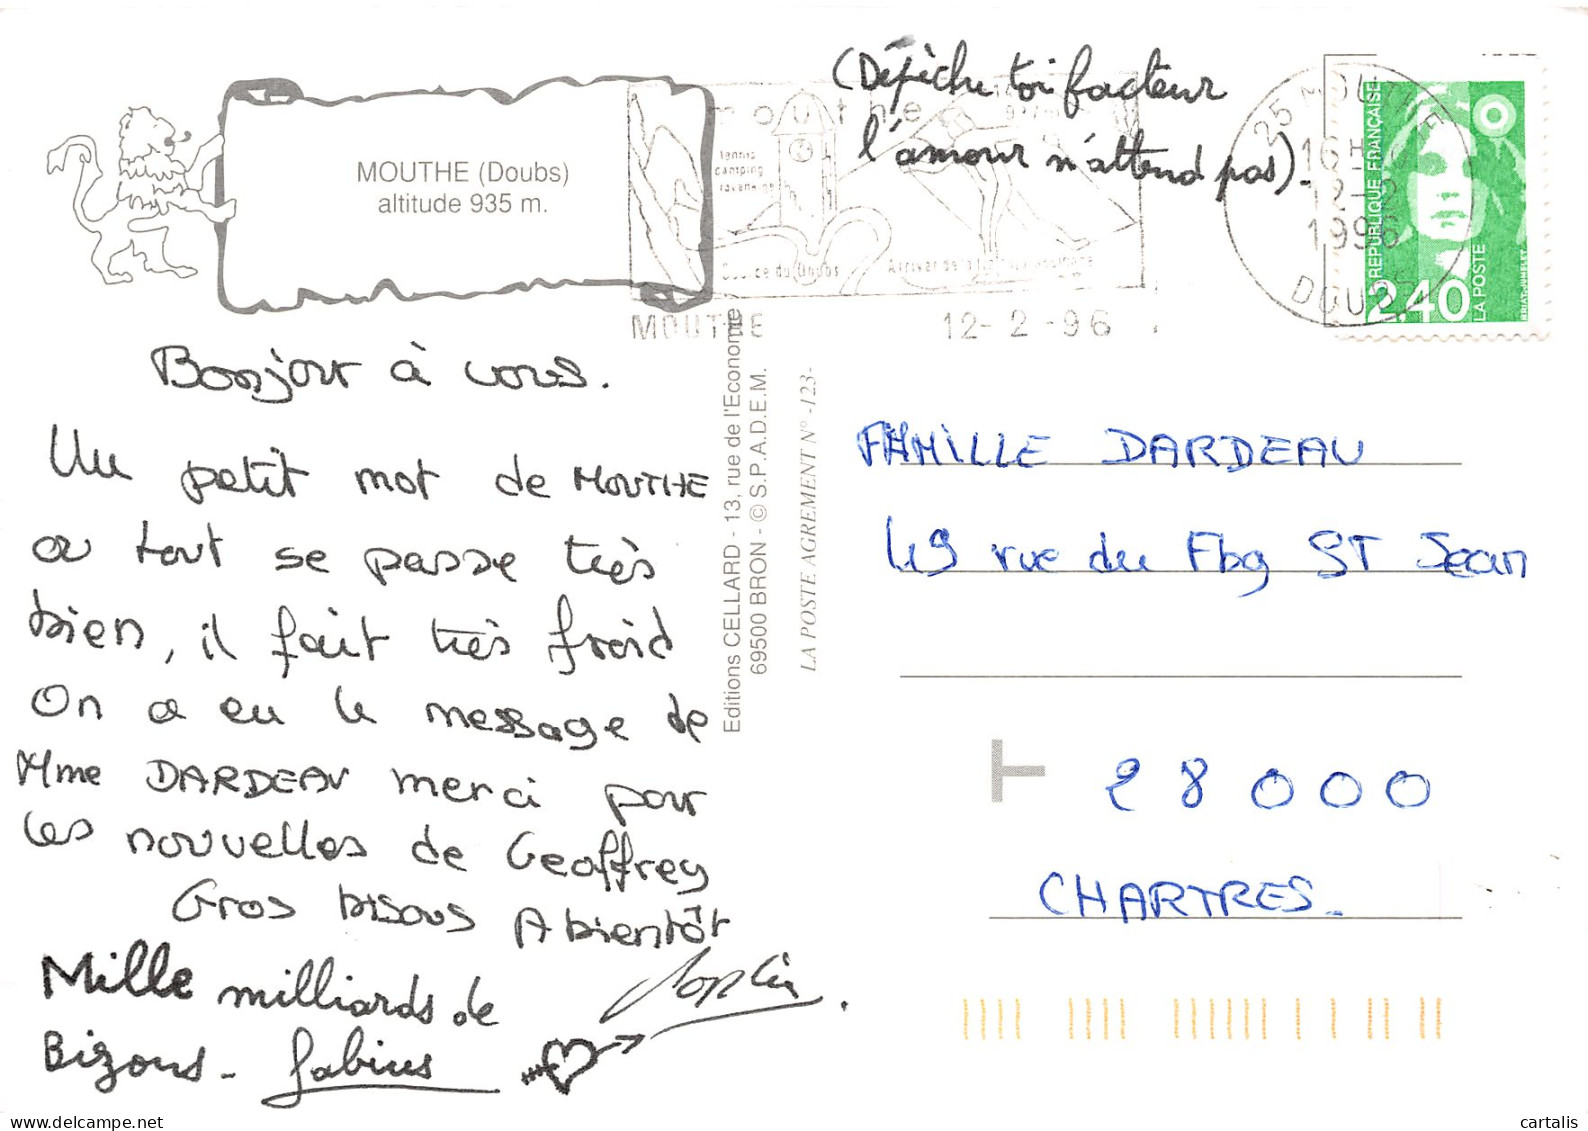 (Dépèche toi facteur
l'amour n'attend pas).
MOUTHE (Doubs)
altitude 935 m.
mouthe
tennis
camping
Source du Doubs
MOUTHE
12-2-96
25 MOUTHE
16H
12-2
1996
DOUBS
REPUBLIQUE FRANÇAISE
LA POSTE
2,40
Bonjour à vous.
Un petit mot de MOUTHE
ou tout se passe très
bien, il fait très froid
On a eu le message de
Mme DARDEAU merci pour
les nouvelles de Geoffrey
Gros bisous A bientôt
Sophie
Mille milliards de
Bizous - Fabius
Editions CELLARD - 13, rue de l'Economie
69500 BRON - © S.P.A.D.E.M.
LA POSTE AGREMENT N° -123-
FAMILLE DARDEAU
49 rue du Fbg ST Jean
28000
CHARTRES.
cartalis